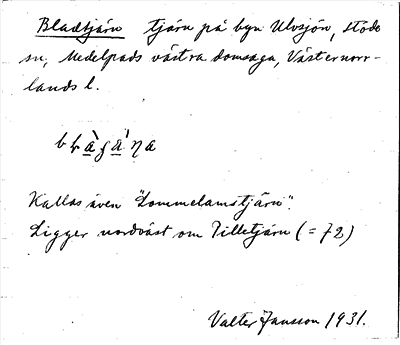 Bladtjärn tjärn på byn Ulvsjön, Stöde
sn, Medelpads västra domsaga, Västernorr-
lands l.
Kallas även "Lommelamstjärn".
Ligger nordväst om Tilletjärn (= 72)
Valter Jansson 1931.